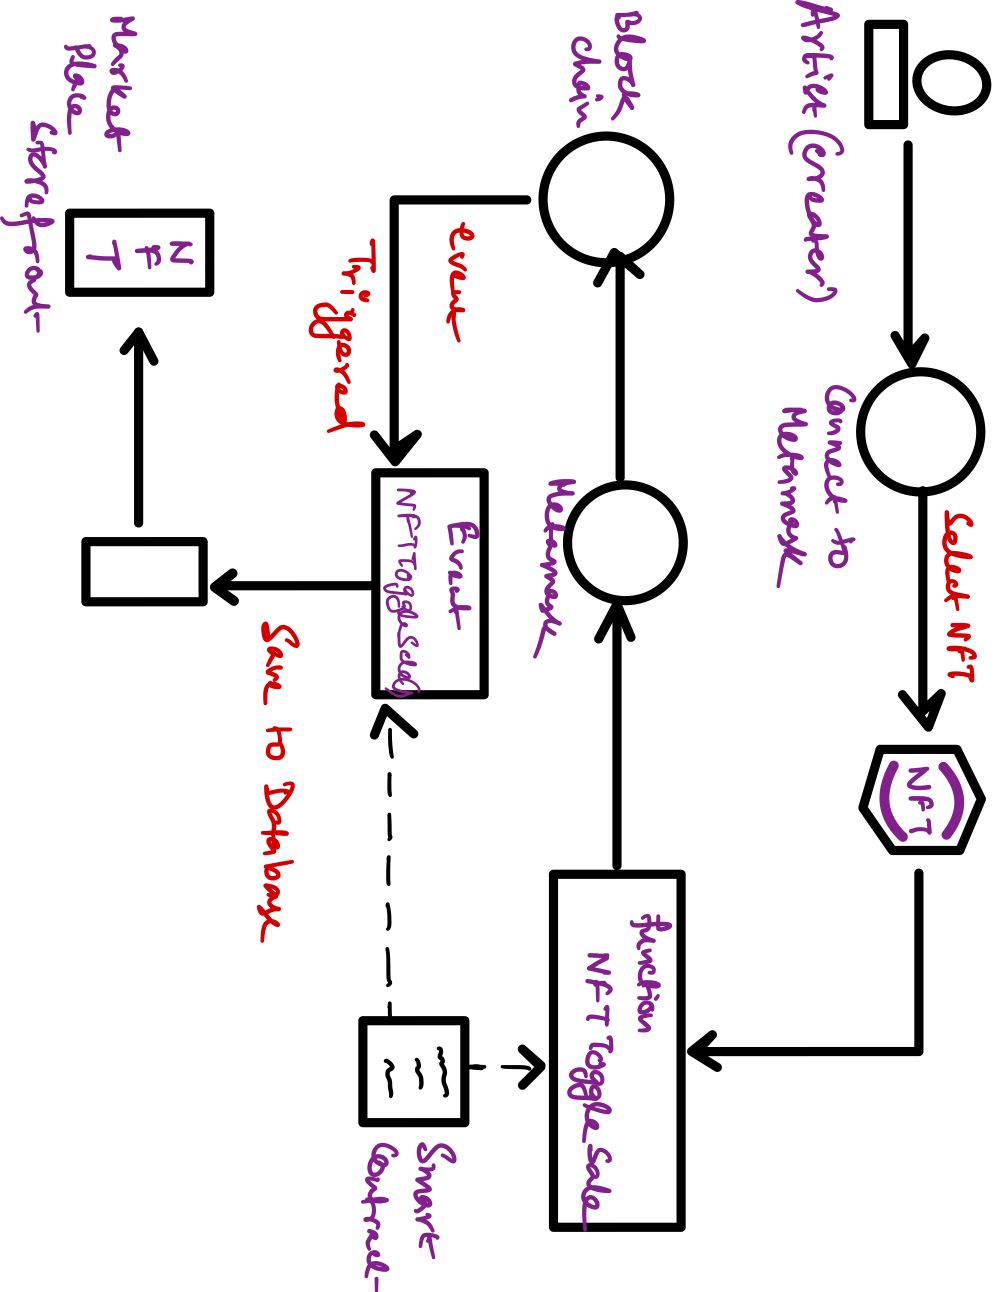 Artist (Creater)
Connect to
Metamask
Select NFT
(NFT)
function
NFTToggleSale
Smart
Contract
Metamask
Block
chain
event
Triggered
Event
NFTToggleSale()
Save to Database
NFT
Market
Place
Storefront